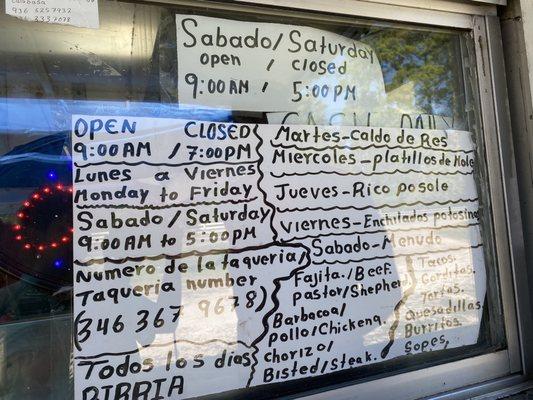 calabasa
936 5257932
936 3337078
Sabado/Saturday
open / closed
9:00AM / 5:00PM
CASH ONLY
OPEN CLOSED
9:00AM / 7:00PM
Lunes a Viernes
Monday to Friday
Sabado/Saturday
9:00AM to 5:00PM
Numero de la taqueria/
Taqueria number
(346 367 9678)
Todos los dias
BIRRIA
Martes-Caldo de Res
Miercoles-platillos de Mole
Jueves-Rico posole
Viernes-Enchiladas potosina
Sabado-Menudo
Fajita./Beef.
pastor/Shepher
Barbacoa/
pollo/Chickeng.
chorizo/
Bisted/Steak.
Tacos.
Gorditas.
Tortas.
Quesadillas
Burritos.
Sopes,